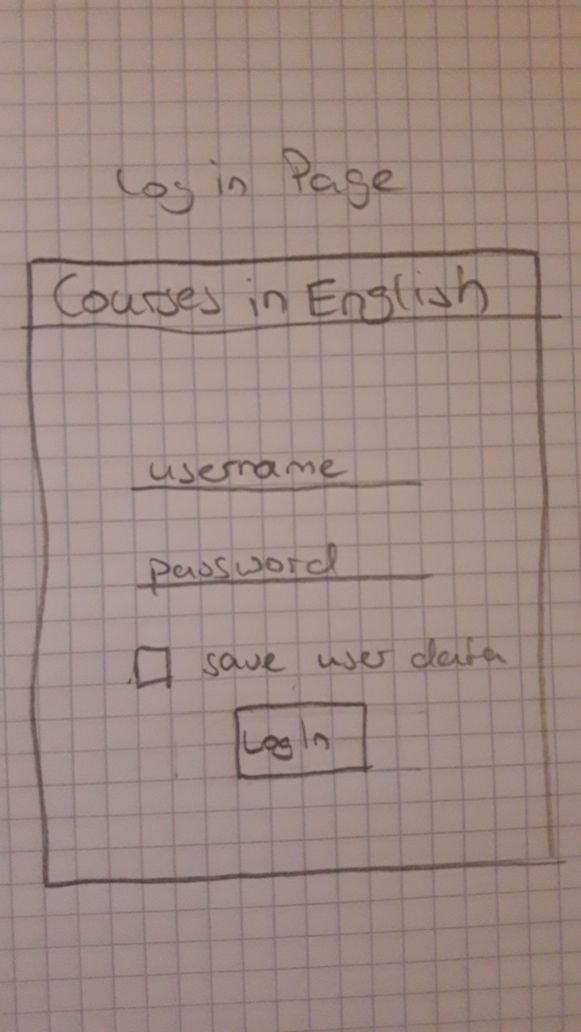 Log in Page
Courses in English
username
password
save user data
LogIn